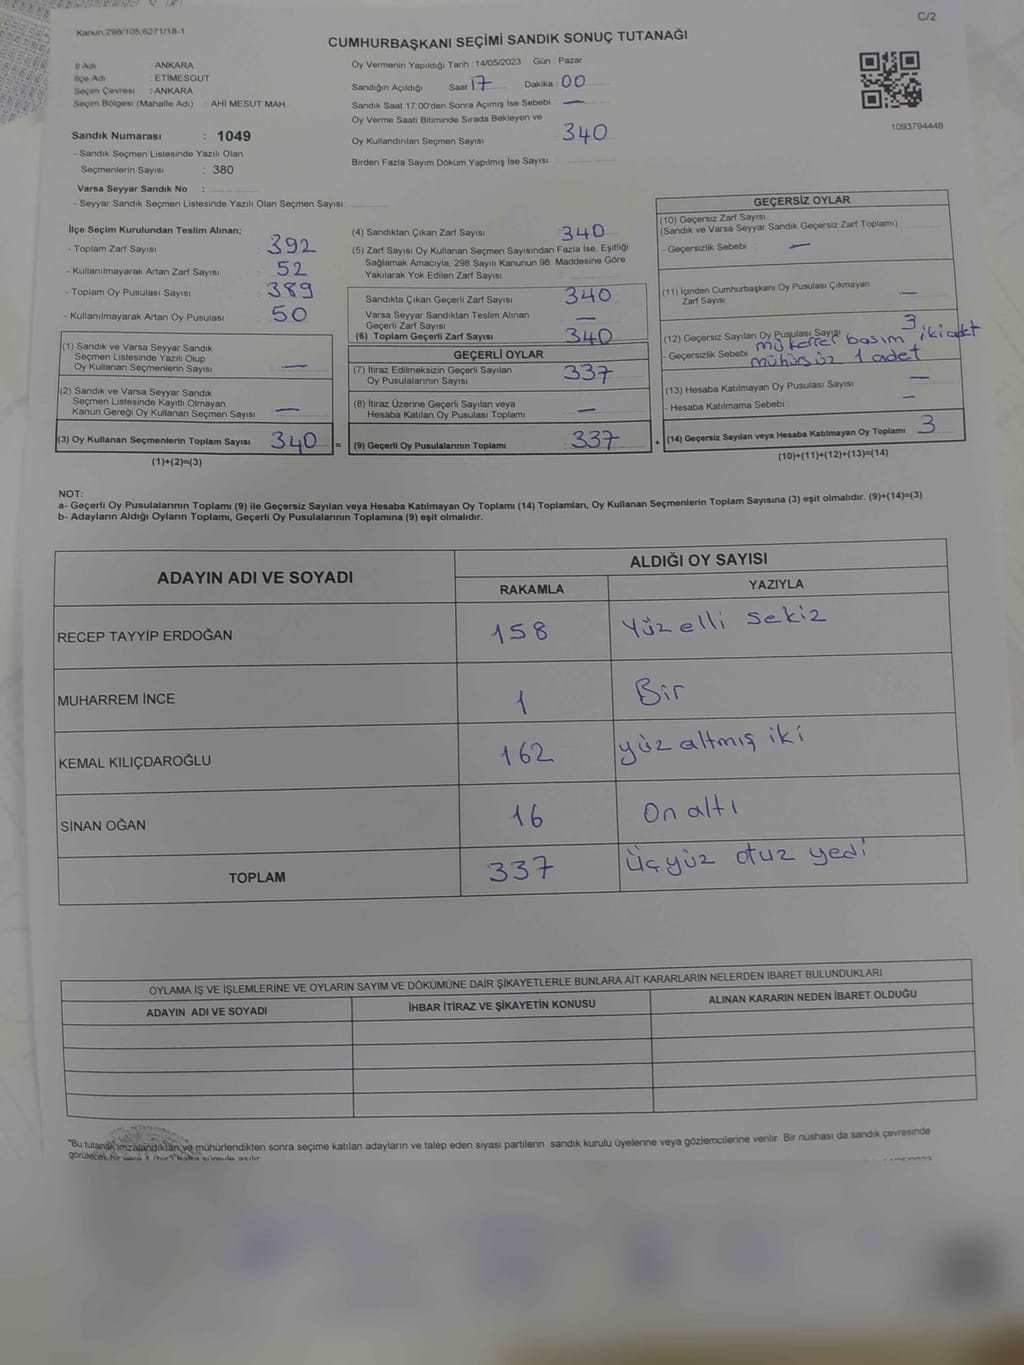 C/2
Kanun 298/105,6271/18-1
CUMHURBAŞKANI SEÇİMİ SANDIK SONUÇ TUTANAĞI
İl Adı : ANKARA
İlçe Adı : ETİMESGUT
Seçim Çevresi : ANKARA
Seçim Bölgesi (Mahalle Adı) : AHİ MESUT MAH.
Sandık Numarası : 1049
- Sandık Seçmen Listesinde Yazılı Olan
Seçmenlerin Sayısı : 380
Varsa Seyyar Sandık No :
- Seyyar Sandık Seçmen Listesinde Yazılı Olan Seçmen Sayısı:
Oy Vermenin Yapıldığı Tarih : 14/05/2023 Gün : Pazar
Sandığın Açıldığı Saat 17 Dakika : 00
Sandık Saat 17:00'den Sonra Açımış İse Sebebi : —
Oy Verme Saati Bitiminde Sırada Bekleyen ve
Oy Kullandırılan Seçmen Sayısı 340
Birden Fazla Sayım Döküm Yapılmış İse Sayısı
1093794448
İlçe Seçim Kurulundan Teslim Alınan;
- Toplam Zarf Sayısı : 392
- Kullanılmayarak Artan Zarf Sayısı : 52
- Toplam Oy Pusulası Sayısı : 389
- Kullanılmayarak Artan Oy Pusulası : 50
(1) Sandık ve Varsa Seyyar Sandık
Seçmen Listesinde Yazılı Olup
Oy Kullanan Seçmenlerin Sayısı : —
(2) Sandık ve Varsa Seyyar Sandık
Seçmen Listesinde Kayıtlı Olmayan
Kanun Gereği Oy Kullanan Seçmen Sayısı : —
(3) Oy Kullanan Seçmenlerin Toplam Sayısı : 340 =
(1)+(2)=(3)
(4) Sandıktan Çıkan Zarf Sayısı : 340
(5) Zarf Sayısı Oy Kullanan Seçmen Sayısından Fazla İse, Eşitliği
Sağlamak Amacıyla, 298 Sayılı Kanunun 98. Maddesine Göre
Yakılarak Yok Edilen Zarf Sayısı
Sandıkta Çıkan Geçerli Zarf Sayısı : 340
Varsa Seyyar Sandıktan Teslim Alınan
Geçerli Zarf Sayısı : —
(6) Toplam Geçerli Zarf Sayısı : 340
GEÇERLİ OYLAR
(7) İtiraz Edilmeksizin Geçerli Sayılan
Oy Pusulalarının Sayısı : 337
(8) İtiraz Üzerine Geçerli Sayılan veya
Hesaba Katılan Oy Pusulası Toplamı : —
(9) Geçerli Oy Pusulalarının Toplamı : 337 +
GEÇERSİZ OYLAR
(10) Geçersiz Zarf Sayısı
(Sandık ve Varsa Seyyar Sandık Geçersiz Zarf Toplamı)
- Geçersizlik Sebebi : —
(11) İçinden Cumhurbaşkanı Oy Pusulası Çıkmayan
Zarf Sayısı : —
(12) Geçersiz Sayılan Oy Pusulası Sayısı : 3
- Geçersizlik Sebebi : mükerrer basım iki adet
mühürsüz 1 adet
(13) Hesaba Katılmayan Oy Pusulası Sayısı : —
- Hesaba Katılmama Sebebi : —
(14) Geçersiz Sayılan veya Hesaba Katılmayan Oy Toplamı : 3
(10)+(11)+(12)+(13)=(14)
NOT:
a- Geçerli Oy Pusulalarının Toplamı (9) ile Geçersiz Sayılan veya Hesaba Katılmayan Oy Toplamı (14) Toplamları, Oy Kullanan Seçmenlerin Toplam Sayısına (3) eşit olmalıdır. (9)+(14)=(3)
b- Adayların Aldığı Oyların Toplamı, Geçerli Oy Pusulalarının Toplamına (9) eşit olmalıdır.
ADAYIN ADI VE SOYADI ALDIĞI OY SAYISI
RAKAMLA YAZIYLA
RECEP TAYYİP ERDOĞAN 158 Yüz elli sekiz
MUHARREM İNCE 1 Bir
KEMAL KILIÇDAROĞLU 162 yüz altmış iki
SİNAN OĞAN 16 On altı
TOPLAM 337 Üçyüz otuz yedi
OYLAMA İŞ VE İŞLEMLERİNE VE OYLARIN SAYIM VE DÖKÜMÜNE DAİR ŞİKAYETLERLE BUNLARA AİT KARARLARIN NELERDEN İBARET BULUNDUKLARI
ADAYIN ADI VE SOYADI İHBAR İTİRAZ VE ŞİKAYETİN KONUSU ALINAN KARARIN NEDEN İBARET OLDUĞU
"Bu tutanak imzalandıktan ve mühürlendikten sonra seçime katılan adayların ve talep eden siyasi partilerin sandık kurulu üyelerine veya gözlemcilerine verilir. Bir nüshası da sandık çevresinde
görülecek bir yere 1 (bir) hafta süreyle asılır.